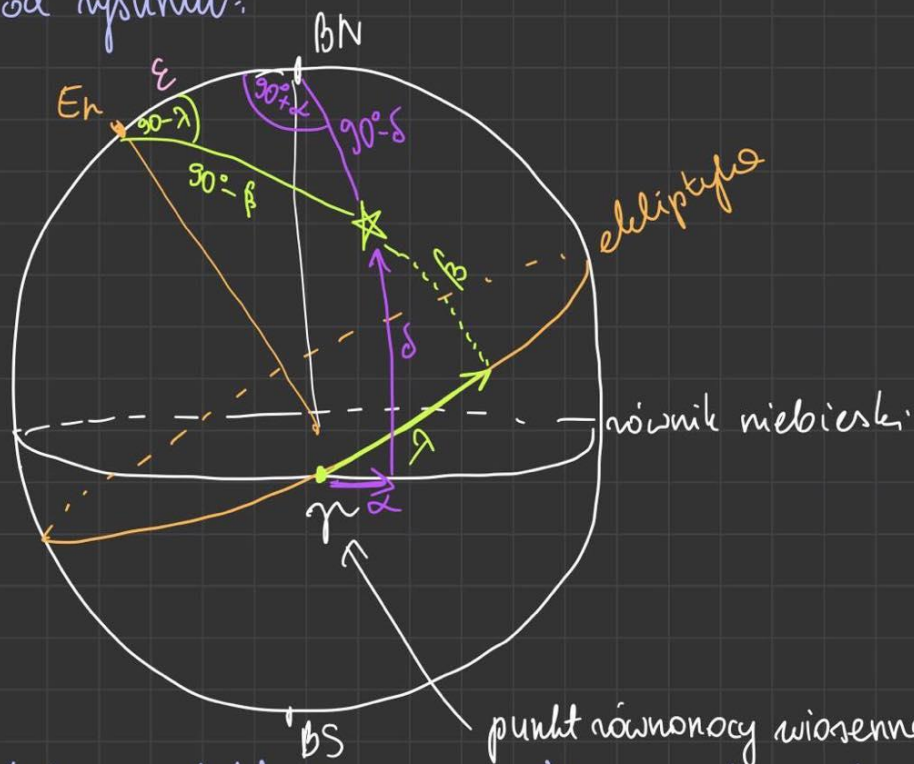 od rysunku:
BN
ε
En
90-λ
90°+α
90°-δ
90°-β
ekliptyka
β
δ
równik niebieski
λ
α
γ
punkt równonocy wiosenne
BS